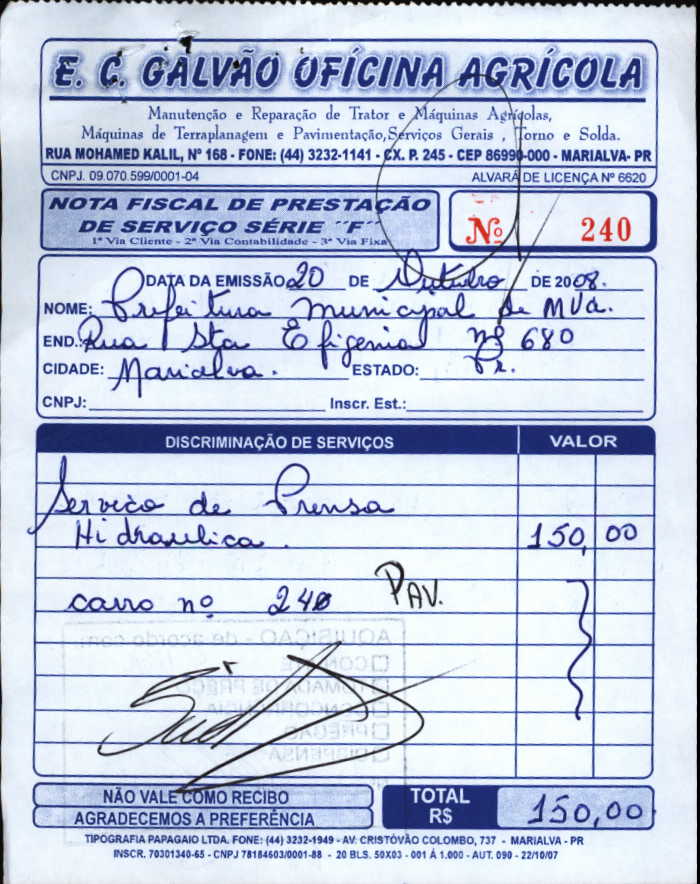 E. C. GALVÃO OFÍCINA AGRÍCOLA
Manutenção e Reparação de Trator e Máquinas Agrícolas,
Máquinas de Terraplanagem e Pavimentação,Serviços Gerais , Torno e Solda.
RUA MOHAMED KALIL, Nº 168 - FONE: (44) 3232-1141 - CX. P. 245 - CEP 86990-000 - MARIALVA- PR
CNPJ. 09.070.599/0001-04 ALVARÁ DE LICENÇA Nº 6620
NOTA FISCAL DE PRESTAÇÃO
DE SERVIÇO SÉRIE ´´F´´
1ª Via Cliente - 2ª Via Contabilidade - 3ª Via Fixa
Nº 240
DATA DA EMISSÃO 20 DE Outubro DE 2008.
NOME: Prefeitura municipal de Mva.
END.: Rua Sta Efigenia nº 680
CIDADE: Marialva. ESTADO: Pr.
CNPJ: Inscr. Est.:
DISCRIMINAÇÃO DE SERVIÇOS VALOR
Serviço de Prensa
Hidraulica. 150,00
carro nº 240 PAV.
AQUISIÇÃO - de acordo com
CONVITE
TOMADA DE PREÇO
CONCORRÊNCIA
PREGÃO
DISPENSA
NÃO VALE COMO RECIBO
AGRADECEMOS A PREFERÊNCIA
TOTAL
R$ 150,00.
TIPOGRAFIA PAPAGAIO LTDA. FONE: (44) 3232-1949 - AV. CRISTÓVÃO COLOMBO, 737 - MARIALVA - PR
INSCR. 70301340-65 - CNPJ 78184603/0001-88 - 20 BLS. 50X03 - 001 Á 1.000 - AUT. 090 - 22/10/07